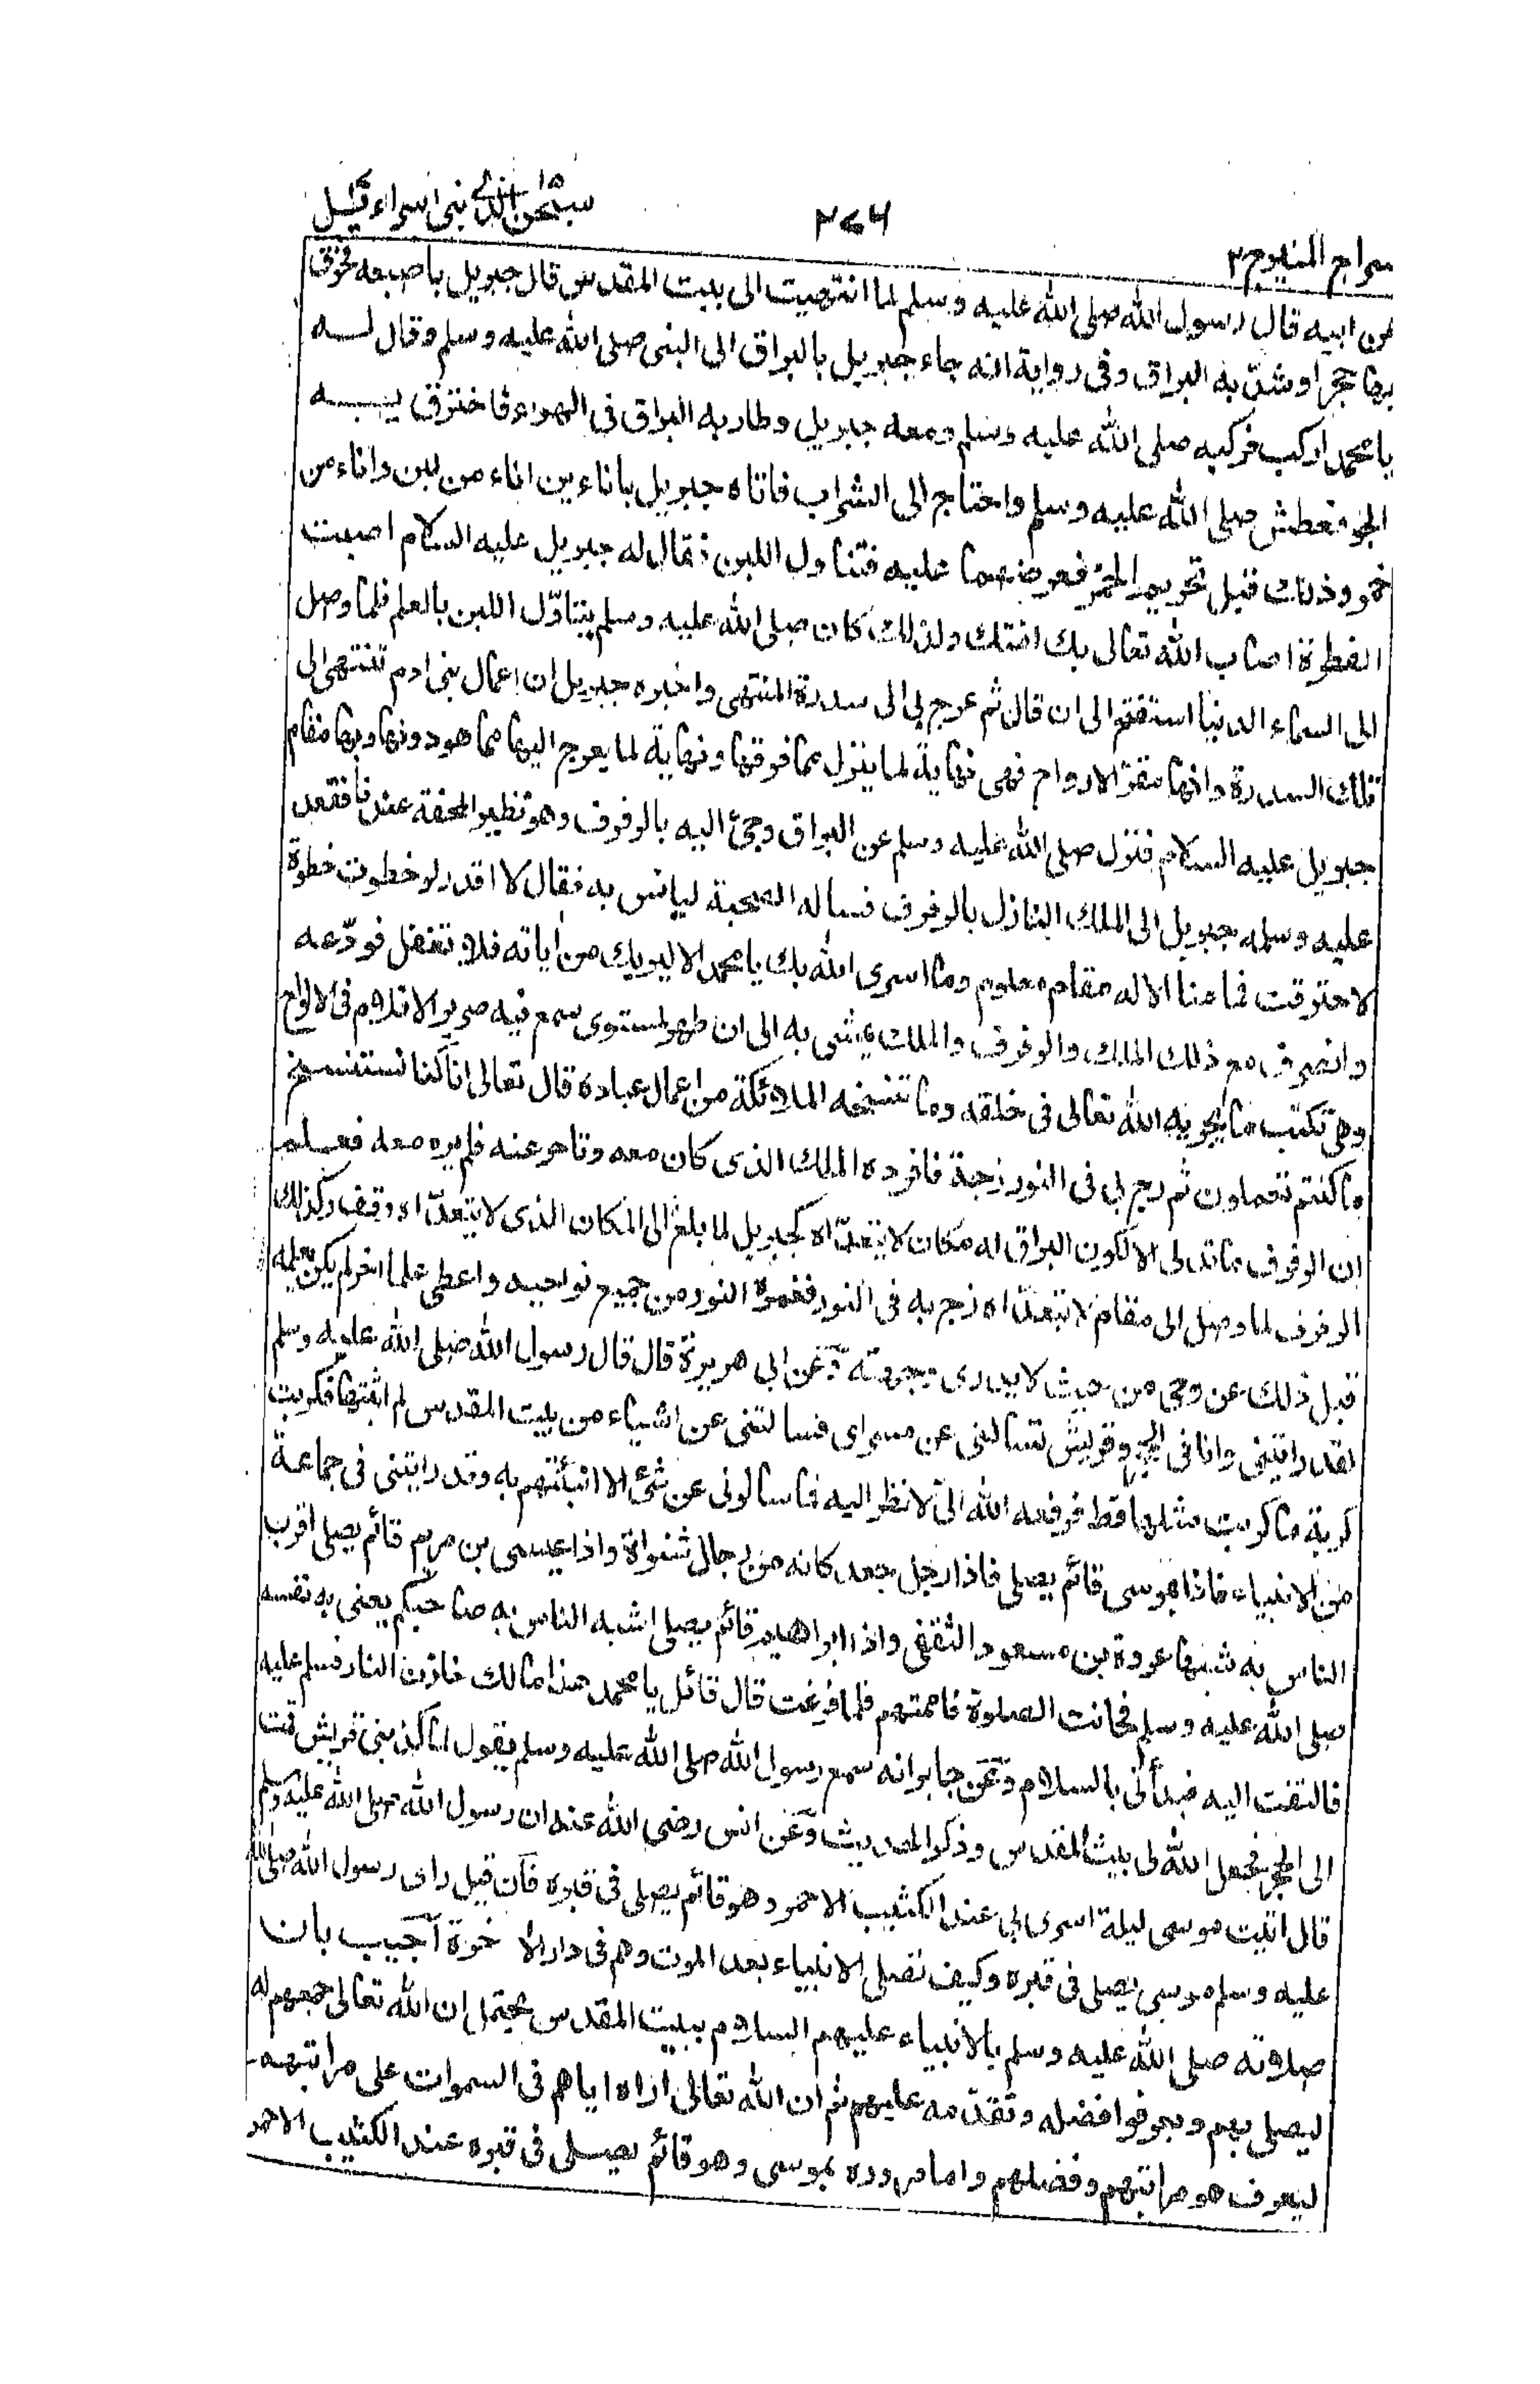 سراج المنير ج٢ ٢٧٦ سبحن الذى ١٥ بنى اسراءيل
عن ابيه قال رسول الله صلى الله عليه وسلم لما انتهيت الى بيت المقدس قال جبريل باصبعه فخرق
بها حجرا وشد به البراق وفى رواية انه جاء جبريل بالبراق الى النبى صلى الله عليه وسلم وقال له
يا محمد اركب فركبه صلى الله عليه وسلم ومعه جبريل وطار به البراق فى الهواء فاخترق به
الجو فعطش صلى الله عليه وسلم واحتاج الى الشراب فاتاه جبريل باناءين اناء من لبن واناء من
خمر وذلك قبل تحريم الخمر فعرضهما عليه فتناول اللبن فقال له جبريل عليه السلام اصبت
الفطرة اصاب الله تعالى بك امتك ولذلك كان صلى الله عليه وسلم يتاوّل اللبن بالعلم فلما وصل
الى السماء الدنيا استفتح الى ان قال ثم عرج بى الى سدرة المنتهى واخبره جبريل ان اعمال بنى ادم تنتهى الى
تلك السدرة وانها مقرّ الارواح فهى نهاية لما ينزل مما فوقها ونهاية لما يعرج اليها مما هو دونها وبها مقام
جبريل عليه السلام فنزل صلى الله عليه وسلم عن البراق وجئ اليه بالرفرف وهو نظير المحفة عندنا فقعد
عليه وسلمه جبريل الى الملك النازل بالرفرف فساله الصحبة ليانس به فقال لا اقدر لو خطوت خطوة
لاحترقت فما منا الا له مقام معلوم وما اسرى الله بك يا محمد الا ليريك من اياته فلا تغفل فودّعه
وانصرف مع ذلك الملك والرفرف والملك يمشى به الى ان ظهر لمستوى سمع فيه صرير الاقلام فى الالواح
وهى تكتب ما يجريه الله تعالى فى خلقه وما تنسخه الملائكة من اعمال عباده قال تعالى انا كنا نستنسخ
ما كنتم تعملون ثم زج بى فى النور زجة فافرده الملك الذى كان معه وتاخر عنه فلم يره معه فعلم
ان الرفرف ما تدلى الا لكون البراق له مكان لا يتعدّاه كجبريل لما بلغ الى المكان الذى لا يتعدّاه وقف وكذلك
الرفرف لما وصل الى مقام لا يتعدّاه زج به فى النور فغمره النور من جميع نواحيه واعطى علما اخر لم يكن يعلمه
قبل ذلك عن وحى من حيث لا يدرى وجهته وعن ابى هريرة قال قال رسول الله صلى الله عليه وسلم
لقد رايتنى وانا فى الحجر وقريش تسالنى عن مسراى فسالتنى عن اشياء من بيت المقدس لم اثبتها فكربت
كربة ما كربت مثلها قط فرفعه الله الىّ لانظر اليه فما سالونى عن شئ الا انبأتهم به وقد رايتنى فى جماعة
من الانبياء فاذا موسى قائم يصلى فاذا رجل جعد كانه من رجال شنواة واذا عيسى بن مريم قائم يصلى اقرب
الناس به شبها عروة بن مسعود الثقفى واذا ابراهيم قائم يصلى اشبه الناس به صاحبكم يعنى به نفسه
صلى الله عليه وسلم فحانت الصلوة فاممتهم فلما فرغت قال قائل يا محمد هذا مالك خازن النار فسلم عليه
فالتفت اليه فبدأنى بالسلام وعن جابر انه سمع رسول الله صلى الله عليه وسلم يقول لما كذبنى قريش قمت
الى الحجر فجعل الله لى بيت المقدس وذكر الحديث وعن انس رضى الله عنه ان رسول الله صلى الله عليه وسلم
قال اتيت موسى ليلة اسرى بى عند الكثيب الاحمر وهو قائم يصلى فى قبره فان قيل راى رسول الله صلى الله
عليه وسلم موسى يصلى فى قبره وكيف تصلى الانبياء بعد الموت وهم فى دار الاخرة اجيب بان
صلاته صلى الله عليه وسلم بالانبياء عليهم السلام ببيت المقدس يحتمل ان الله تعالى جمعهم له
ليصلى بهم ويعرفوا فضله وتقدّمه عليهم ثم ان الله تعالى اراه اياهم فى السموات على مراتبهم
ليعرف هو مراتبهم وفضلهم واما مروره بموسى وهو قائم يصلى فى قبره عند الكثيب الاحمر